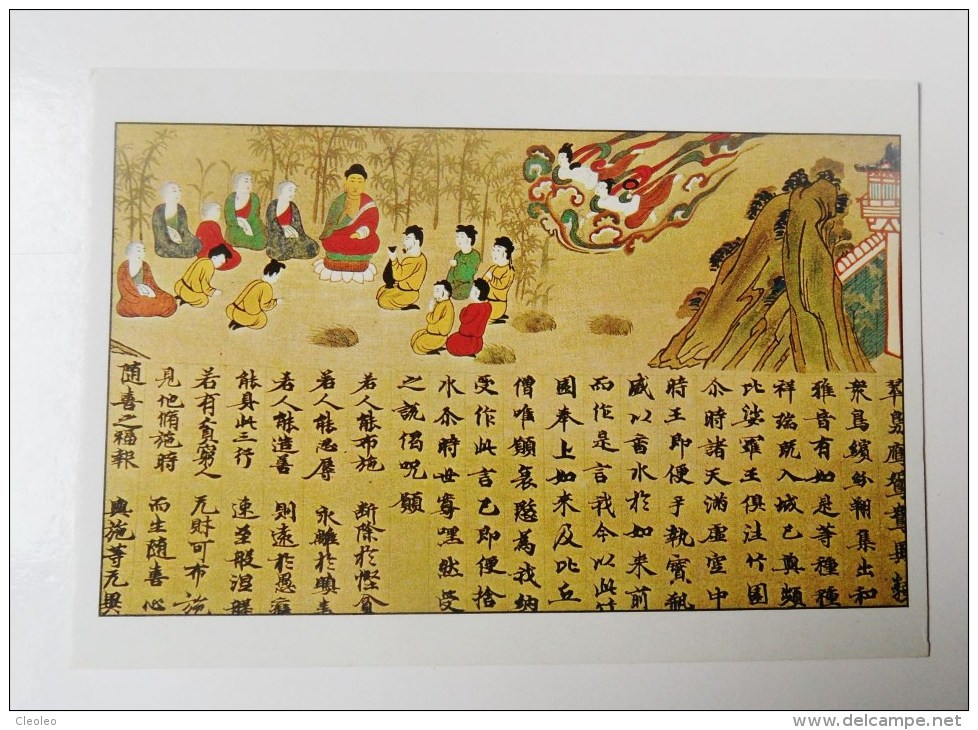 翠鳧鴈鴛鴦異類
衆鳥繽紛翔集出和
雅音有如是等種種
祥瑞既入城已與頻
比娑羅王俱往竹園
尒時諸天滿虛空中
時王即便手執寶瓶
盛以香水於如來前
而作是言我今以此竹
園奉上如来及比丘
僧唯願哀愍為我納
受作此言已即便捨
水尒時世尊嘿然受
之說偈呪願
若人能布施 斷除於慳貪
若人能忍辱 永離於瞋恚
若人能造善 則遠於愚癡
能具此三行 速至般涅槃
若有貧窮人 无財可布施
見他脩施時 而生随喜心
随喜之福報 與施等无異
Cleoleo
www.delcampe.net